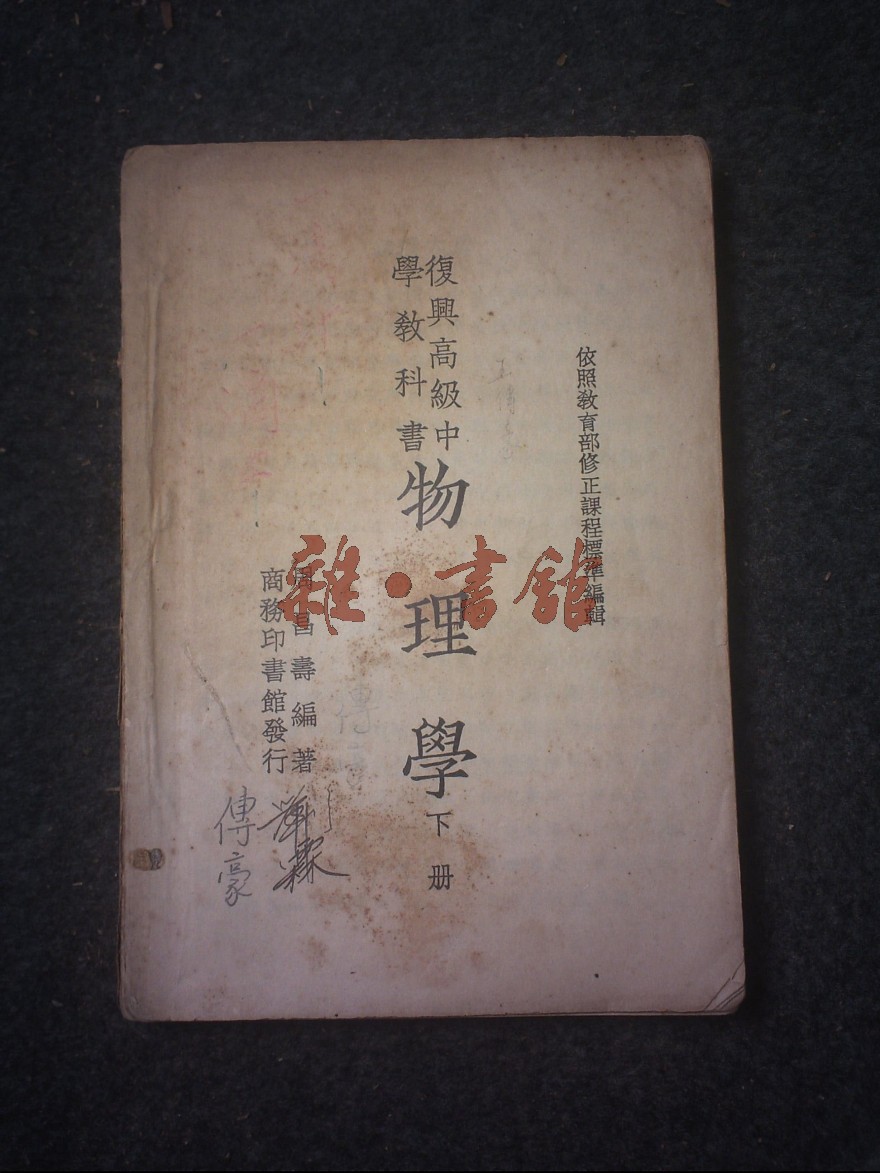 依照教育部修正課程標準編輯
復興高級中
學教科書
物理學
下册
周昌壽編著
商務印書館發行
傳豪
雜·書館